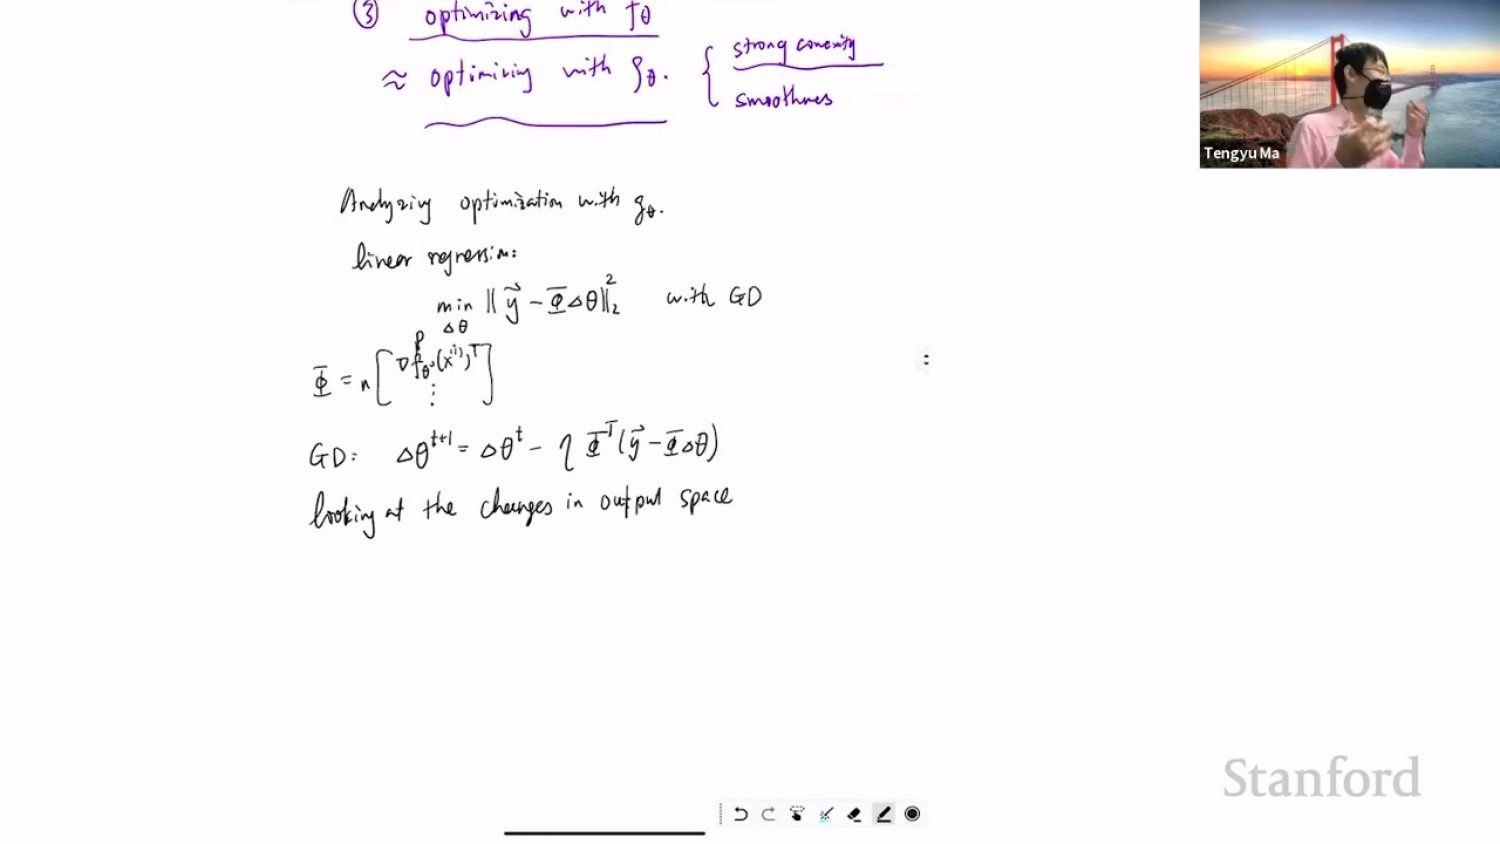 ③ optimizing with fθ
≈ optimizing with gθ. { strong convexity
smoothness
Tengyu Ma
Analyzing optimization with gθ.
linear regression:
min ‖ y⃗ - Φ Δθ ‖₂² with GD
Δθ
p
Φ = n [ ∇f_θ⁰(x⁽ⁱ⁾)ᵀ ]
⋮
GD: Δθᵗ⁺¹ = Δθᵗ - η Φᵀ(y⃗ - Φ Δθ)
looking at the changes in output space
Stanford